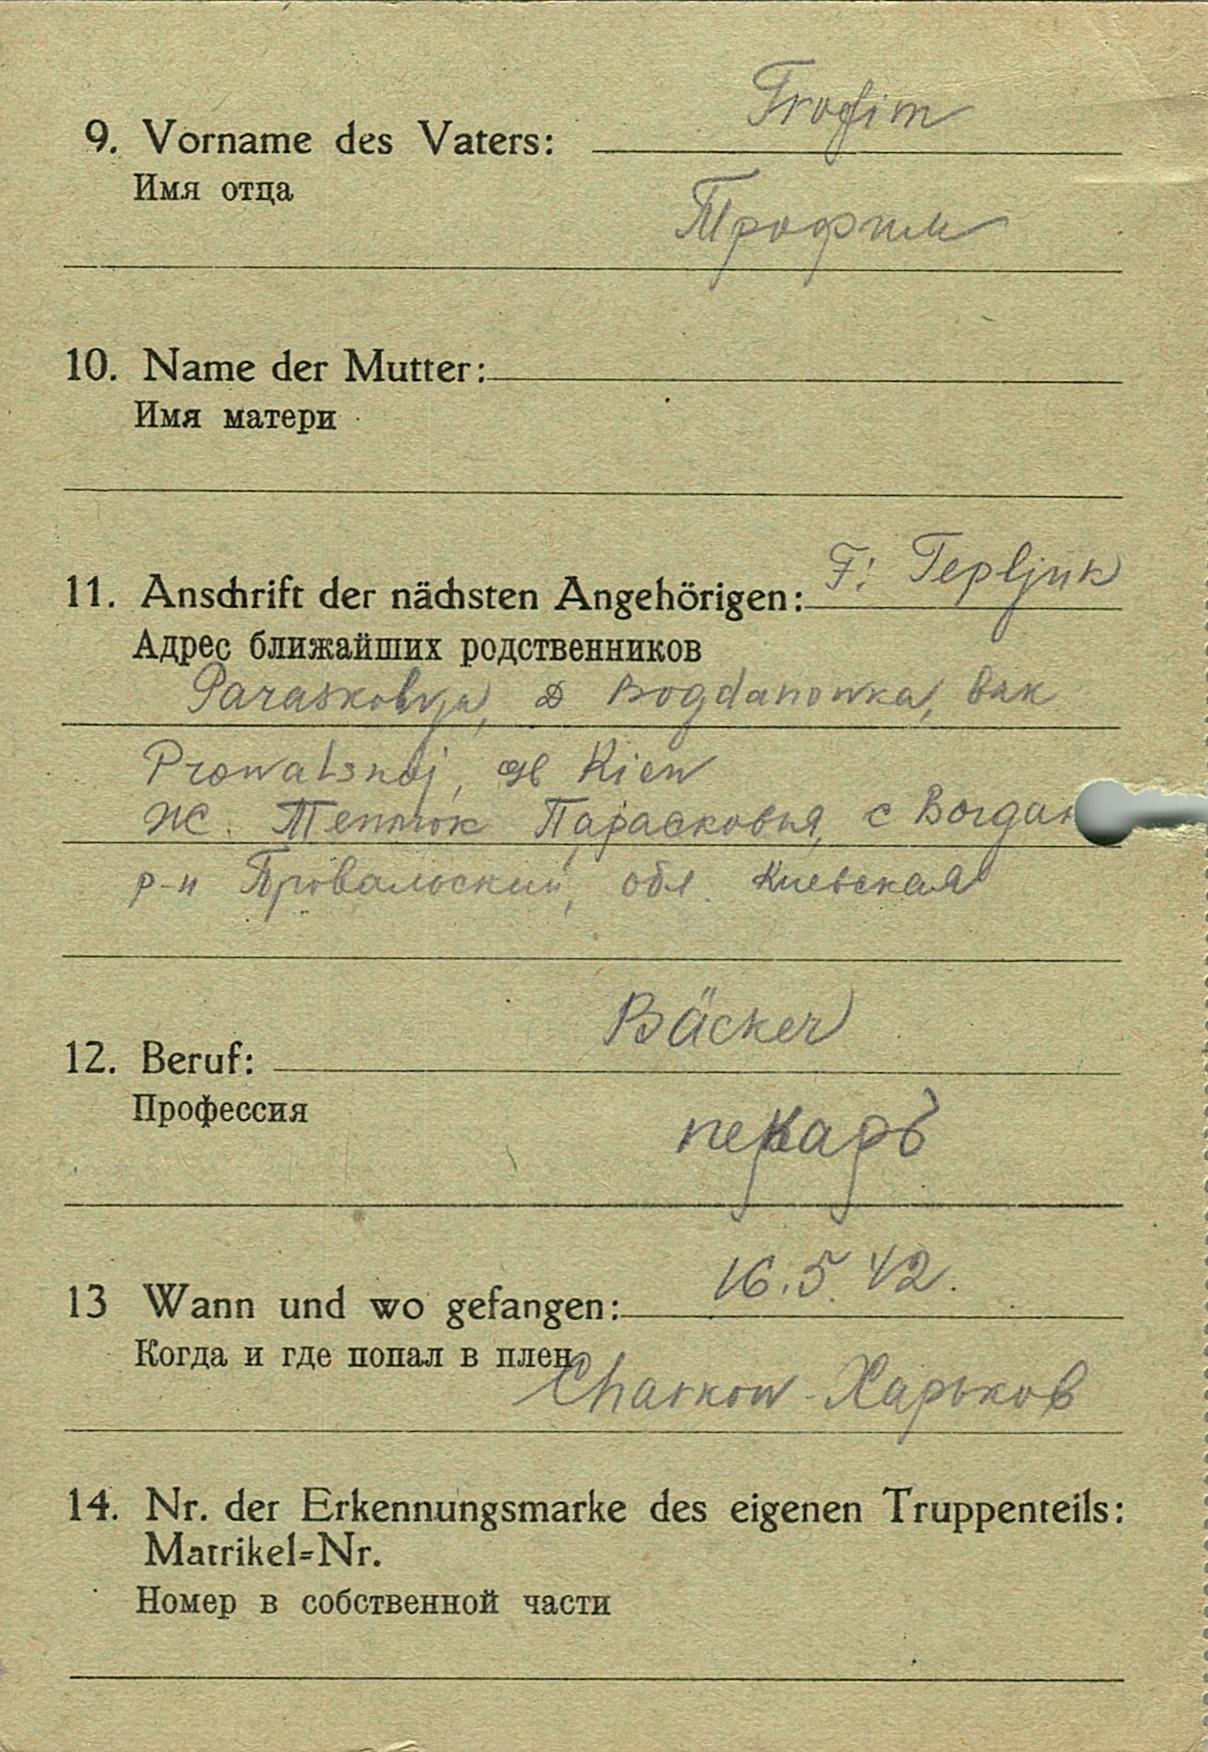 Trofim
9. Vorname des Vaters:
Имя отца
Трофим
10. Name der Mutter:
Имя матери
F: Tepljuk
11. Anschrift der nächsten Angehörigen:
Адрес ближайших родственников
Paraskovja, D Bogdanowka,
Prowalskoj, Kiew
Ж. Теплюк Парасковья, с Богдан
р-н Провальский, обл. Киевская
Bäcker
12. Beruf:
Профессия
пекарь
16.5.42.
13 Wann und wo gefangen:
Когда и где попал в плен
Charkow - Харьков
14. Nr. der Erkennungsmarke des eigenen Truppenteils:
Matrikel=Nr.
Номер в собственной части